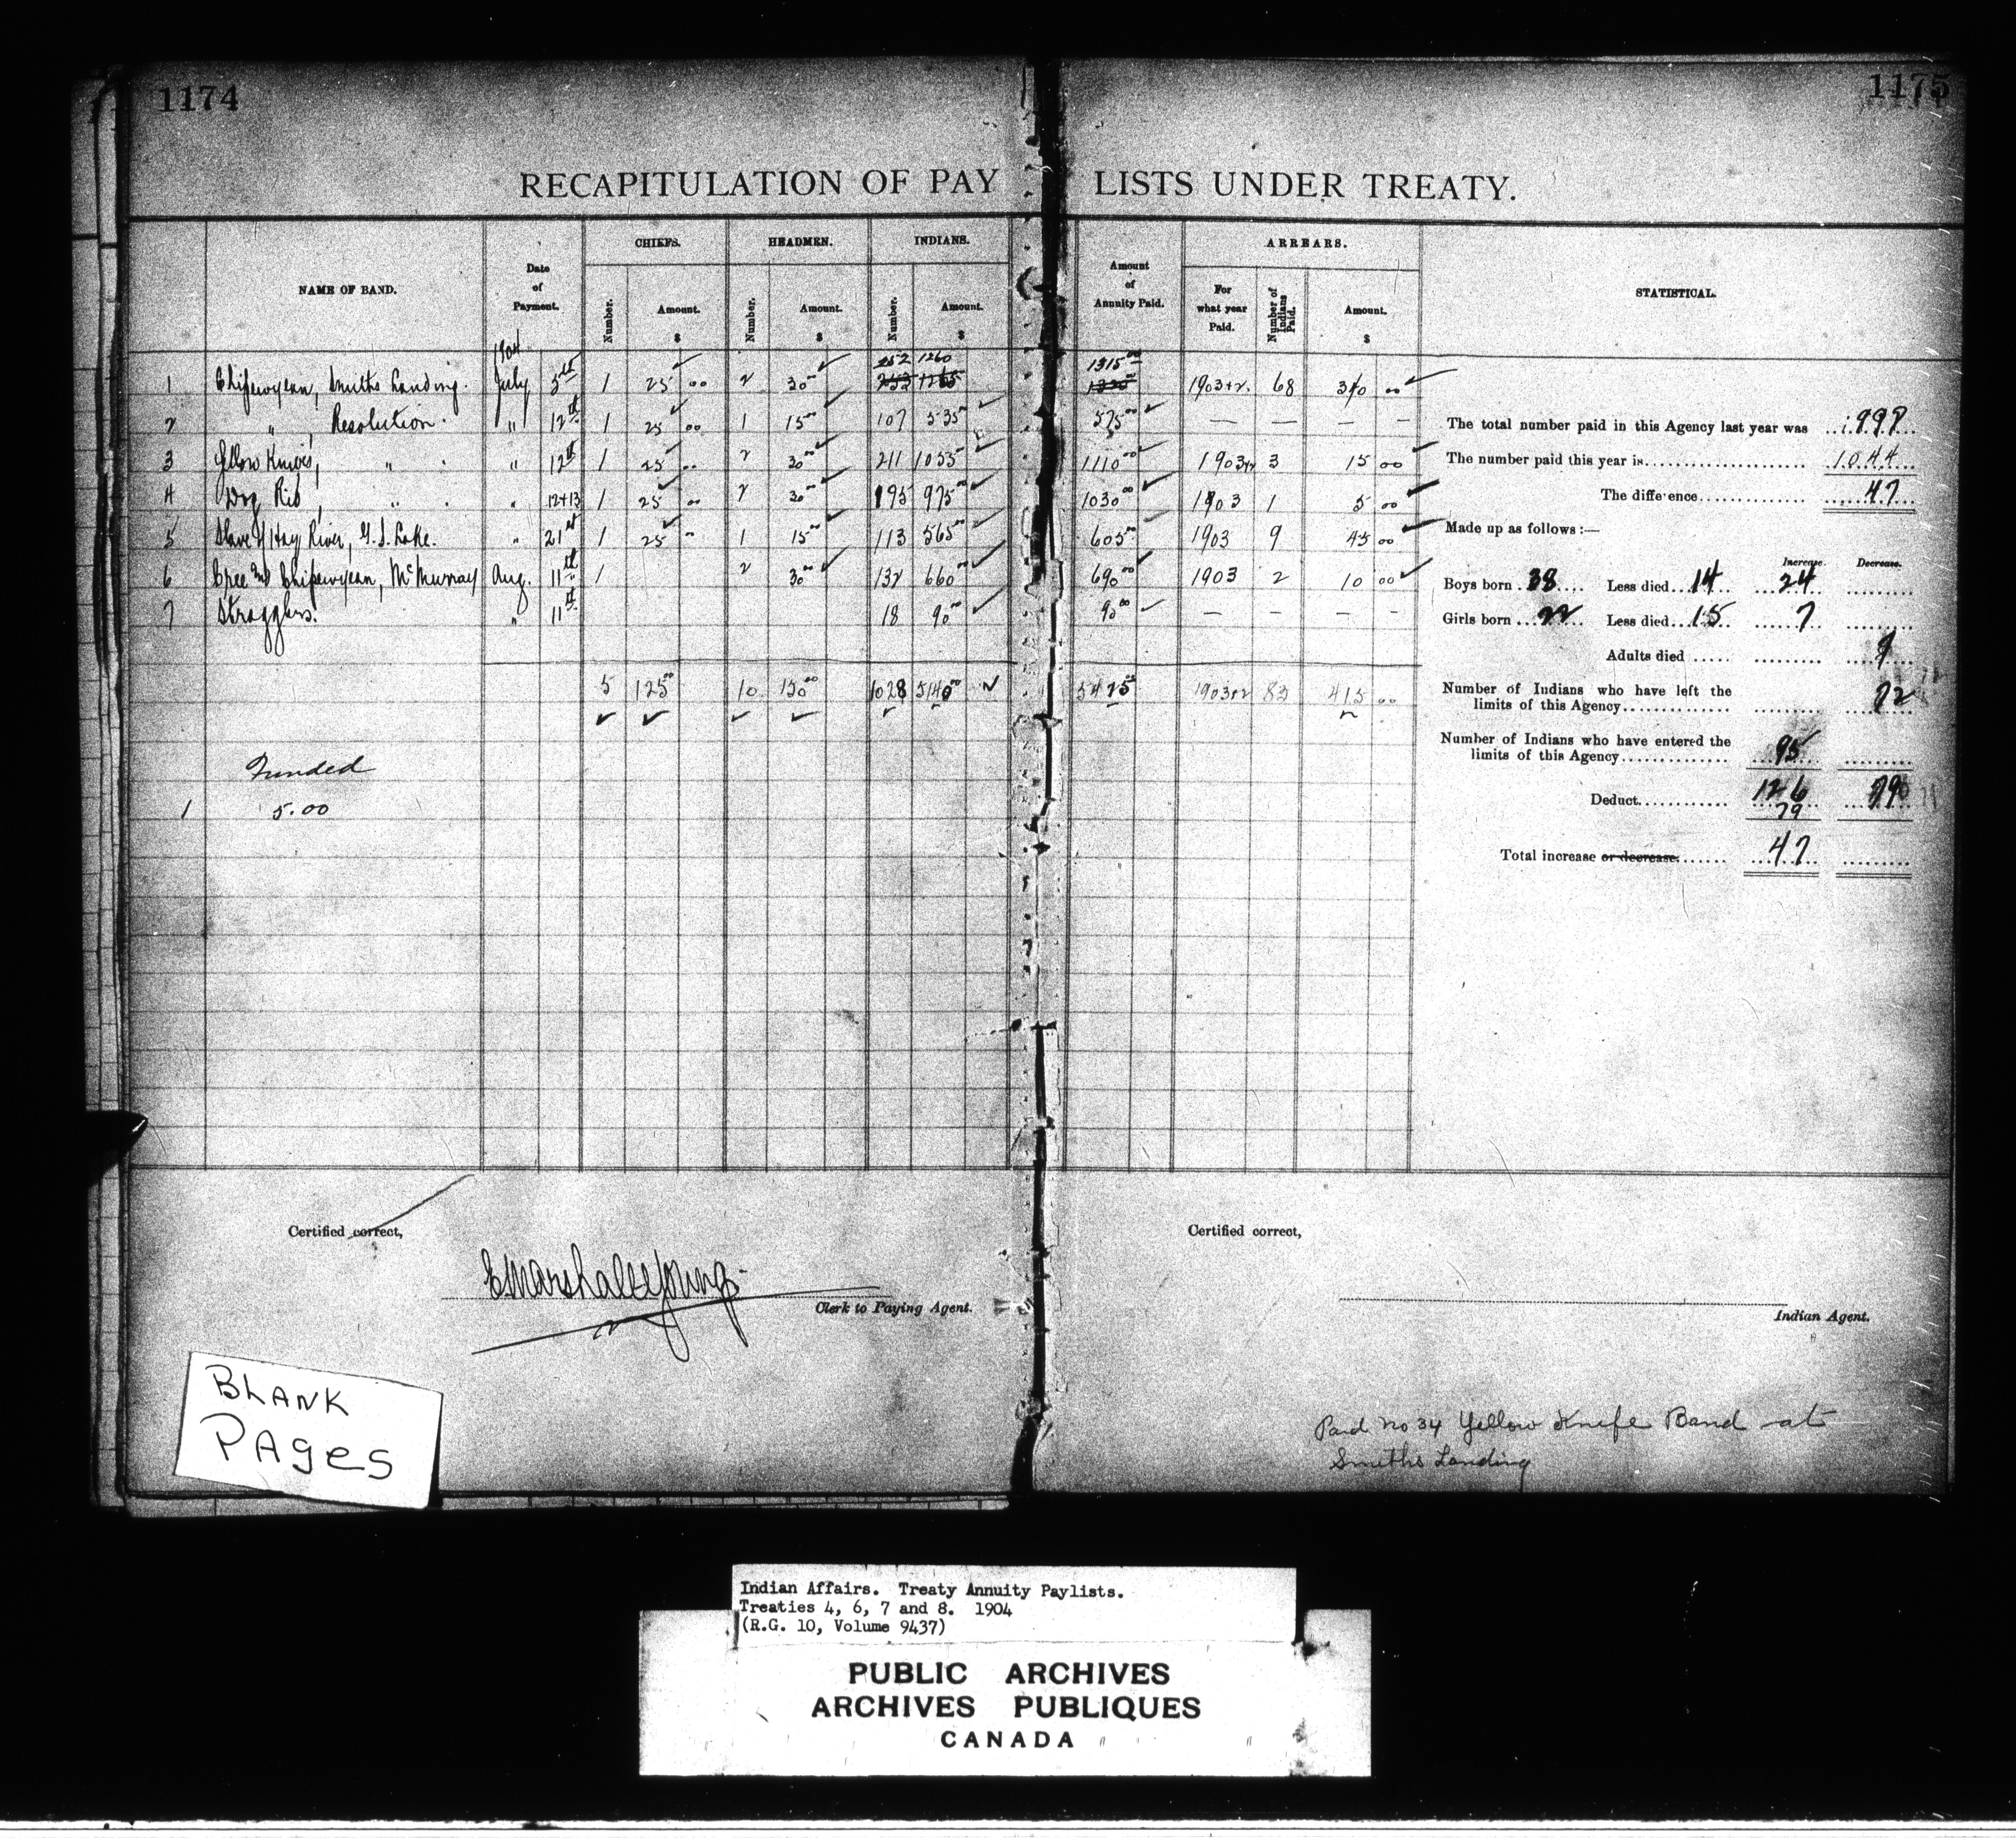 1174
1175
RECAPITULATION OF PAY LISTS UNDER TREATY.
NAME OF BAND. Date of Payment. CHIEFS. HEADMEN. INDIANS. Amount of Annuity Paid. ARREARS. STATISTICAL.
Number. Amount. $ Number. Amount. $ Number. Amount. $ For what year Paid. Number of Indians Paid. Amount. $
1904
252 1260 1315 00
1 Chipewyean, Smiths Landing. July 5th 1 25 00 2 30 00 253 1265 1320 00 1903+2. 68 340 00
2 " , Resolution. " 12th 1 25 00 1 15 00 107 535 00 575 00 — — — —
3 Yellow Knives, " . " 12th 1 25 .. 2 30 00 211 1055 00 1110 00 1903+2 3 15 00
4 Dog Rib, " . " 12+13 1 25 00 2 30 00 195 975 00 1030 00 1903 1 5 00
5 Slave of Hay River, G.S. Lake. " 21st 1 25 " 1 15 00 113 565 00 605 00 1903 9 45 00
6 Cree and Chipewyean, McMurray Aug. 11th 1 2 30 00 132 660 00 690 00 1903 2 10 00
7 Stragglers. " 11th 18 90 00 90 00 — — — —
5 125 00 10 150 00 1028 5140 00 5425 00 1903+2 83 415 00
Funded
1 5.00
The total number paid in this Agency last year was 997
The number paid this year is 1044
The difference 47
Made up as follows:—
Increase. Decrease.
Boys born 38 Less died 14 24
Girls born 22 Less died 15 7
Adults died
Number of Indians who have left the
limits of this Agency 72
Number of Indians who have entered the
limits of this Agency 95
Deduct 126 79
79
Total increase or decrease 47
Certified correct,
E Marshall Young.
Clerk to Paying Agent.
Certified correct,
Indian Agent.
Paid no 34 Yellow Knife Band at
Smiths Landing
BLANK
PAges
Indian Affairs. Treaty Annuity Paylists.
Treaties 4, 6, 7 and 8. 1904
(R.G. 10, Volume 9437)
PUBLIC ARCHIVES
ARCHIVES PUBLIQUES
CANADA